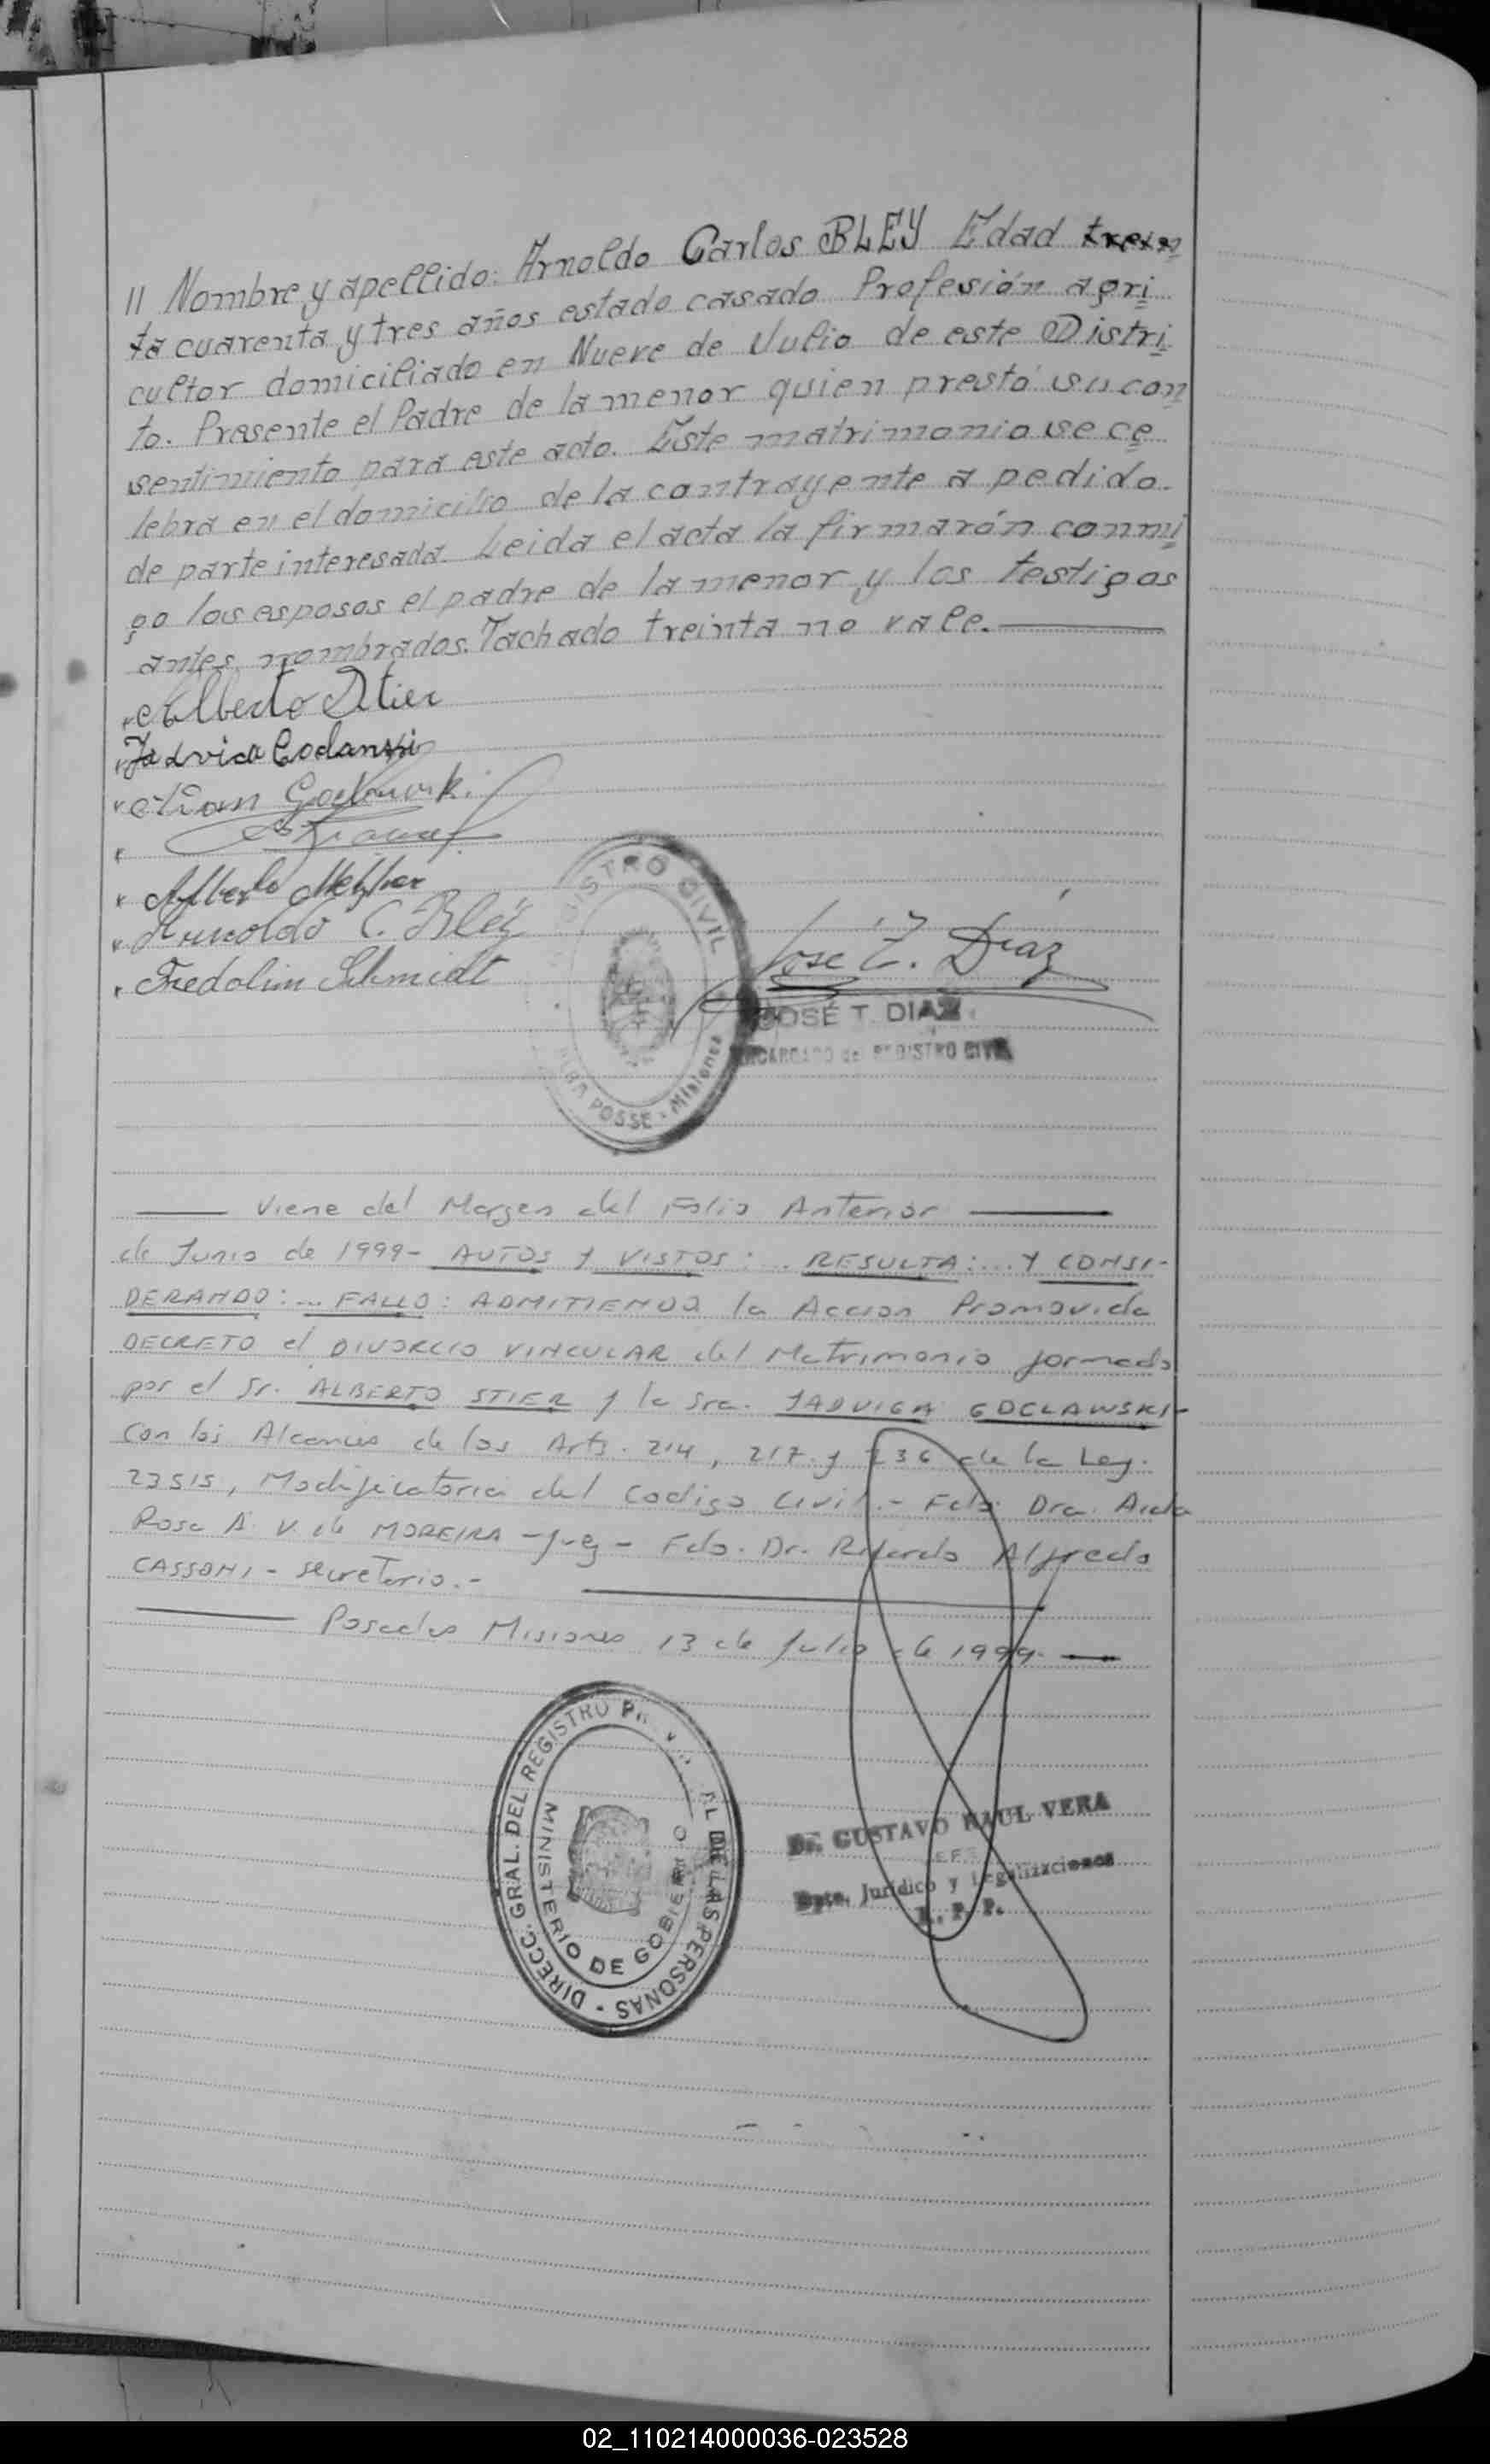 II Nombre y apellido: Arnoldo Carlos BLEY Edad trein
ta cuarenta y tres años estado casado Profesión agri
cultor domiciliado en Nueve de Julio de este Distri
to. Presente el Padre de la menor quien prestó su con
sentimiento para este acto. Este matrimonio se ce
lebra en el domicilio de la contrayente a pedido
de parte interesada. Leida el acta la firmarón conmi
go los esposos el padre de la menor y los testigos
antes nombrados. Tachado treinta no vale.
Alberto Stier
Jadvica Goclanski
Goclawski
Alberto
Arnoldo C. Bley
Fredolin Schmidt
REGISTRO CIVIL
ALBA POSSE - Misiones
Jose T. Diaz
JOSÉ T. DIAZ
ENCARGADO del REGISTRO CIVIL
Viene del Margen del Folio Anterior
de Junio de 1999- AUTOS Y VISTOS: .. RESULTA: ... Y CONSI-
DERANDO: ... FALLO: ADMITIENDO la Accion Promovida
DECRETO el DIVORCIO VINCULAR del Matrimonio formado
por el Sr. ALBERTO STIER y la Sra. JADVIGA GOCLAWSKI-
Con los Alcances de los Arts. 214, 217 y 236 de la Ley.
23515, Modificatoria del Codigo Civil.- Fdo. Dra. Aida
Rosa A. V. de MOREIRA - Juez - Fdo. Dr. Ricardo Alfredo
CASSONI - Secretario.-
Posadas Misiones 13 de Julio de 1999.
DIRECC. GRAL. DEL REGISTRO PROVINCIAL DE LAS PERSONAS -
MINISTERIO DE GOBIERNO
Dr. GUSTAVO RAUL VERA
JEFE
Dpto. Jurídico y Legalizaciones
R. P. P.
02_110214000036-023528